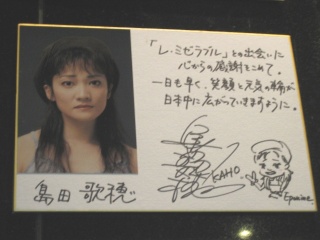 「レ・ミゼラブル」との出会いに
心からの感謝をこめて。
一日も早く、笑顔と元気の輪が
日本中に広がっていきますように。
KAHO
Eponine
島田歌穂